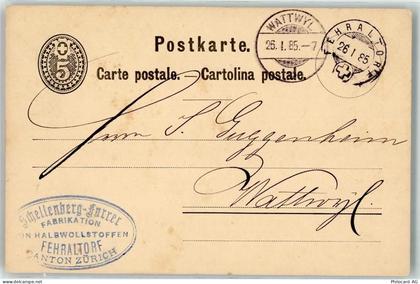 WATTWYL
26. I. 85.-7
FEHRALTORF
26 I 85
Postkarte.
5
Carte postale. — Cartolina postale.
Herrn S. Guggenheim
Wattwyl.
Schellenberg-Furrer
FABRIKATION
VON HALBWOLLSTOFFEN
FEHRALTORF
CANTON ZÜRICH